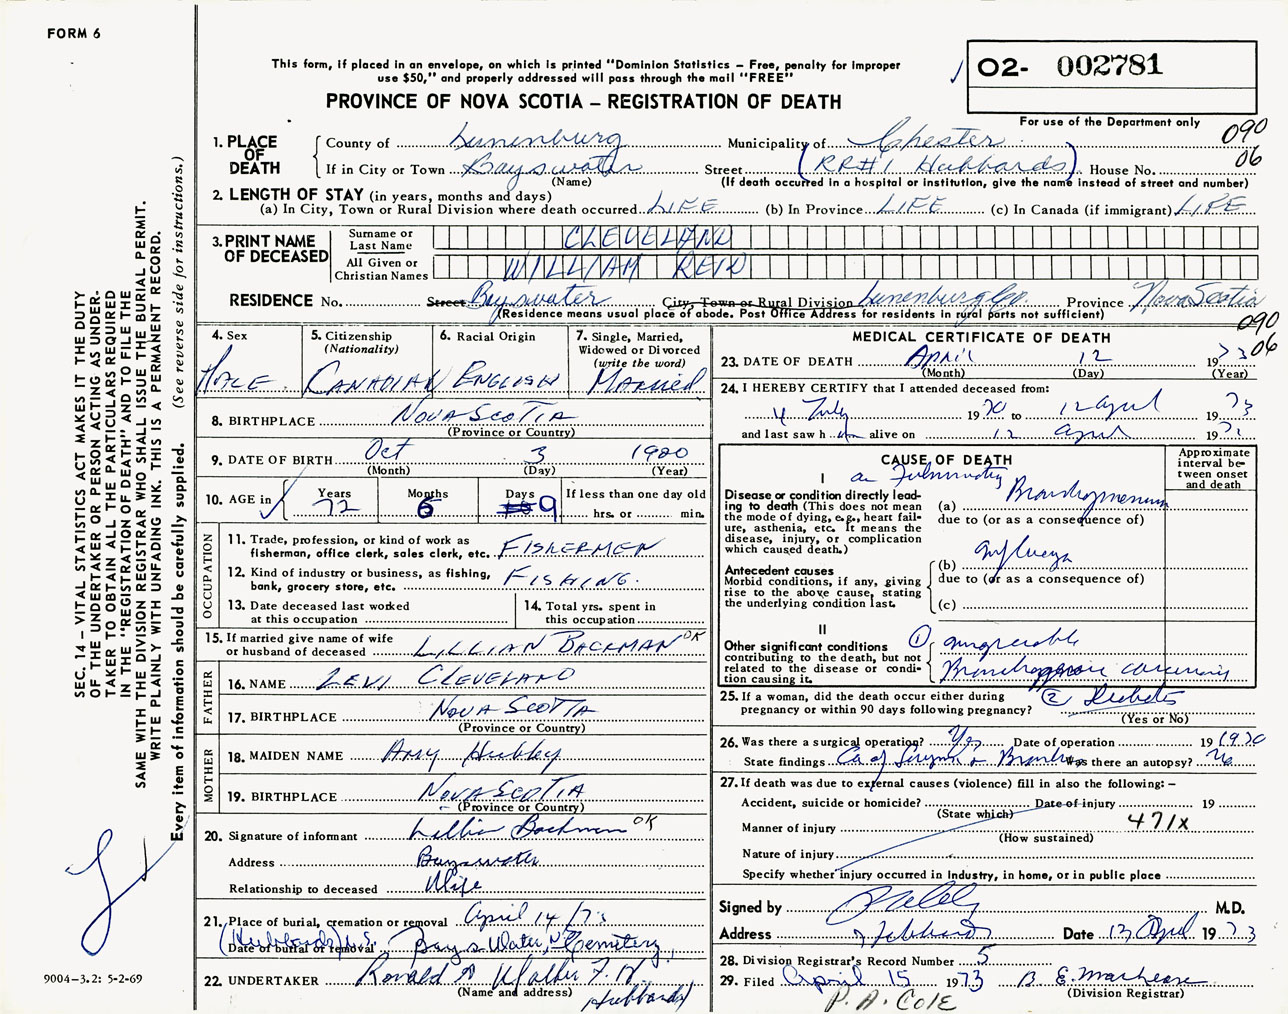 FORM 6
This form, if placed in an envelope, on which is printed "Dominion Statistics – Free, penalty for improper
use $50," and properly addressed will pass through the mail "FREE"
PROVINCE OF NOVA SCOTIA – REGISTRATION OF DEATH
O2- 002781
For use of the Department only
090
06
1. PLACE OF DEATH
County of Lunenburg Municipality of Chester
If in City or Town Bayswater Street (RR#1 Hubbards) House No.
(Name) (If death occurred in a hospital or institution, give the name instead of street and number)
2. LENGTH OF STAY (in years, months and days)
(a) In City, Town or Rural Division where death occurred LIFE (b) In Province LIFE (c) In Canada (if immigrant) LIFE
3. PRINT NAME OF DECEASED
Surname or Last Name CLEVELAND
All Given or Christian Names WILLIAM REID
RESIDENCE No. Street Bayswater City, Town or Rural Division Lunenburg Co. Province Nova Scotia
(Residence means usual place of abode. Post Office Address for residents in rural parts not sufficient)
090
06
4. Sex
MALE
5. Citizenship
(Nationality)
CANADIAN
6. Racial Origin
ENGLISH
7. Single, Married,
Widowed or Divorced
(write the word)
MARRIED
8. BIRTHPLACE NOVA SCOTIA
(Province or Country)
9. DATE OF BIRTH Oct 3 1900
(Month) (Day) (Year)
10. AGE in Years Months Days If less than one day old
72 6 9 hrs. or min.
OCCUPATION
11. Trade, profession, or kind of work as
fisherman, office clerk, sales clerk, etc. FISHERMEN
12. Kind of industry or business, as fishing,
bank, grocery store, etc. FISHING.
13. Date deceased last worked
at this occupation
14. Total yrs. spent in
this occupation
15. If married give name of wife
or husband of deceased LILLIAN BACKMAN OK
FATHER
16. NAME LEVI CLEVELAND
17. BIRTHPLACE NOVA SCOTIA
(Province or Country)
MOTHER
18. MAIDEN NAME Amy Hubley
19. BIRTHPLACE NOVA SCOTIA
(Province or Country)
20. Signature of informant Lillian Backman OK
Address Bayswater
Relationship to deceased Wife
21. Place of burial, cremation or removal April 14/73
Date of burial or removal (Hubbards) N.S. Bays Water, Cemetery,
22. UNDERTAKER Ronald A Walker F. H
(Name and address) Hubbards
MEDICAL CERTIFICATE OF DEATH
23. DATE OF DEATH April 12 1973
(Month) (Day) (Year)
24. I HEREBY CERTIFY that I attended deceased from:
4 July 1970 to 12 April 1973
and last saw h im alive on 12 April 197
CAUSE OF DEATH
Approximate
interval be-
tween onset
and death
I
Disease or condition directly lead-
ing to death (This does not mean
the mode of dying, e.g., heart fail-
ure, asthenia, etc. It means the
disease, injury, or complication
which caused death.)
(a) Fulminating Bronchopneumonia
due to (or as a consequence of)
Antecedent causes
Morbid conditions, if any, giving
rise to the above cause, stating
the underlying condition last.
(b) Influenza
due to (or as a consequence of)
(c)
II
Other significant conditions
contributing to the death, but not
related to the disease or condi-
tion causing it.
① Bronchogenic carcinoma
② Diabetes
25. If a woman, did the death occur either during
pregnancy or within 90 days following pregnancy?
(Yes or No)
26. Was there a surgical operation? Yes Date of operation 19 1970
State findings Ca of Larynx + Bronchus Was there an autopsy? No
27. If death was due to external causes (violence) fill in also the following: –
Accident, suicide or homicide? Date of injury 19
(State which)
Manner of injury 471X
(How sustained)
Nature of injury
Specify whether injury occurred in industry, in home, or in public place
Signed by M.D.
Address Hubbards Date 13 April 1973
28. Division Registrar's Record Number 5
29. Filed April 15 1973 B. E.
(Division Registrar)
P. A. COLE
SEC. 14 – VITAL STATISTICS ACT MAKES IT THE DUTY
OF THE UNDERTAKER OR PERSON ACTING AS UNDER-
TAKER TO OBTAIN ALL THE PARTICULARS REQUIRED
IN THE "REGISTRATION OF DEATH" AND TO FILE THE
SAME WITH THE DIVISION REGISTRAR WHO SHALL ISSUE THE BURIAL PERMIT.
WRITE PLAINLY WITH UNFADING INK. THIS IS A PERMANENT RECORD.
Every item of information should be carefully supplied. (See reverse side for instructions.)
9004–3.2: 5-2-69